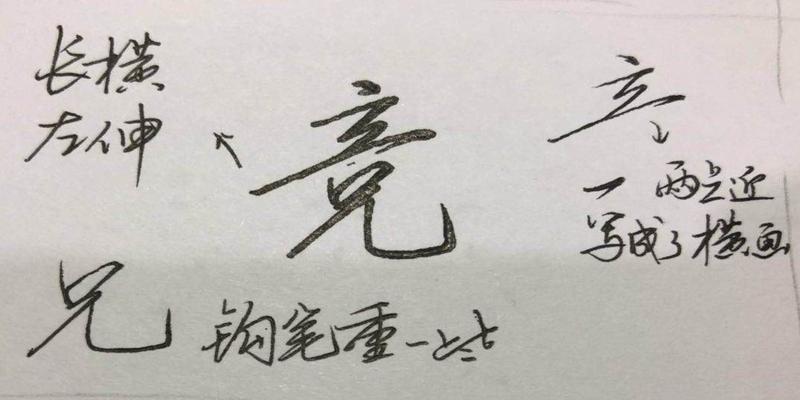 长横
左伸
竞
立
一 两点近
写成了横画
兄 钩笔重一些